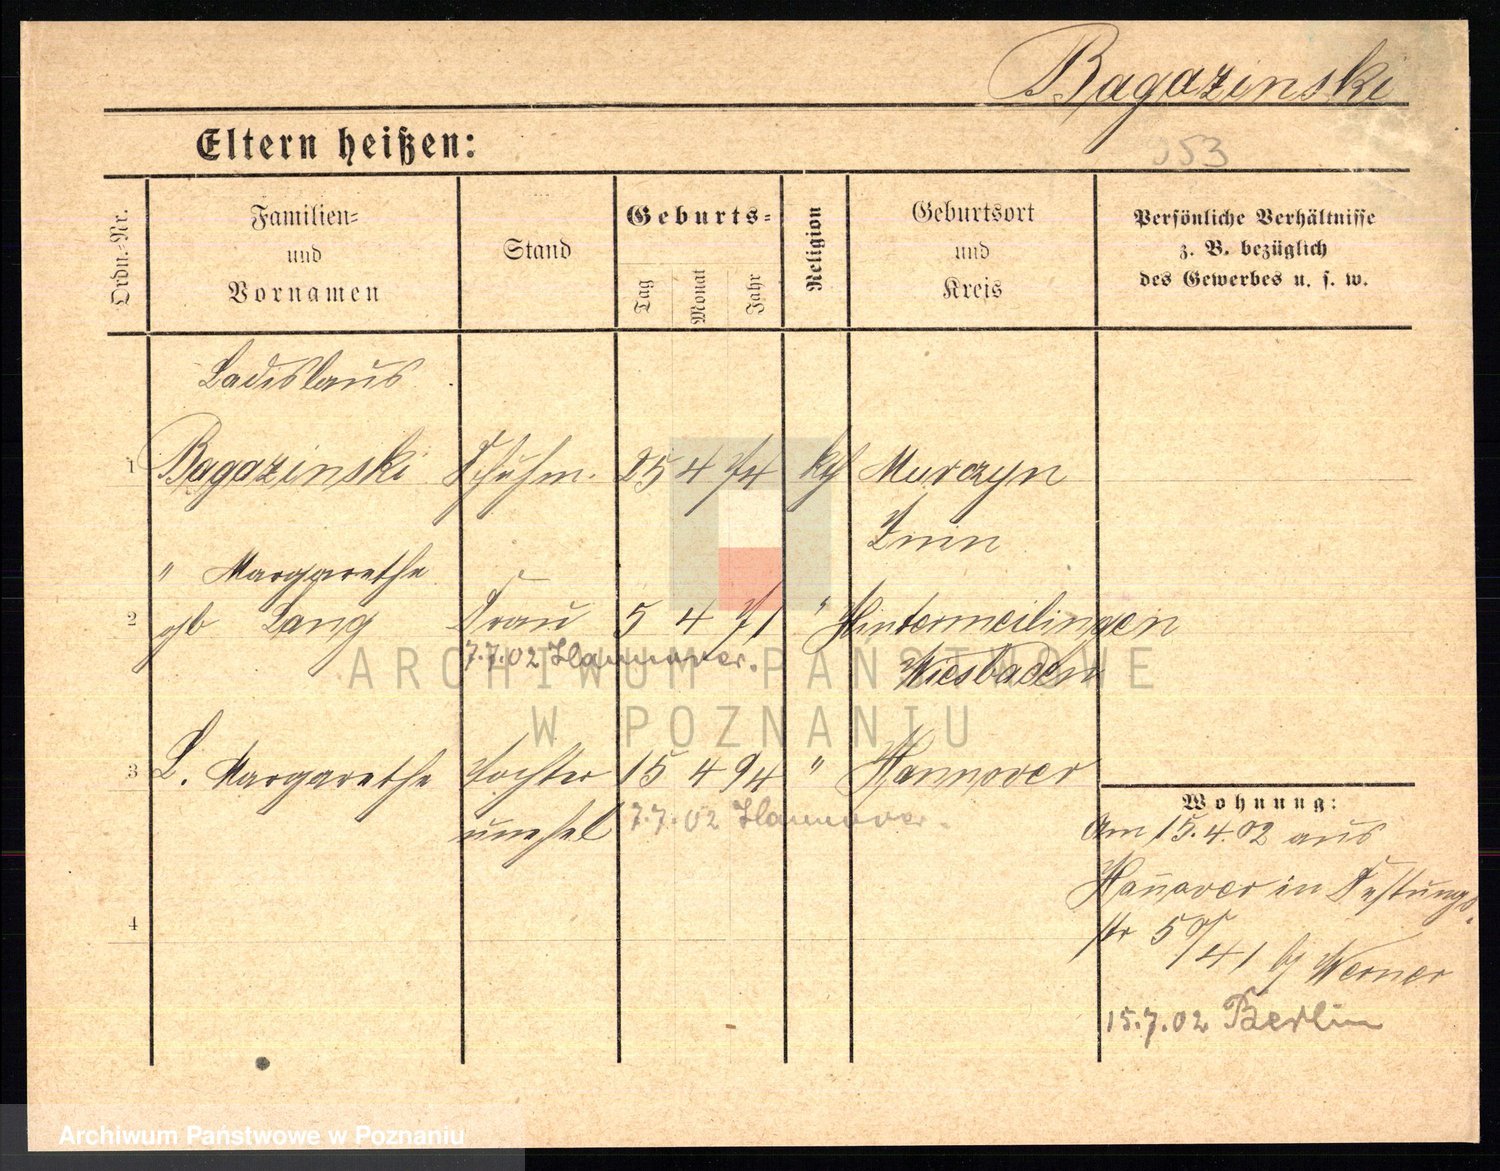 Bagazinski
353
Eltern heißen:
Ordn.-Nr.
Familien-
und
Vornamen
Stand
Geburts-
Tag
Monat
Jahr
Religion
Geburtsort
und
Kreis
Persönliche Verhältnisse
z. B. bezüglich
des Gewerbes u. s. w.
Ladislaus
1 Bagazinski Schuhm. 25 4 74 kth Murczyn
Znin
" Margarethe
2 gb Lang Frau 5 4 71 " Hintermeilingen
7.7.02 Hannover. Wiesbaden
3 L. Margarethe Tochter 15 4 94 " Hannover
unehel 7.7.02 Hannover.
4
Wohnung:
Am 15.4.02 aus
Hañover in Festungs-
str 5 /41 bj Werner
15.7.02 Berlin
ARCHIWUM PAŃSTWOWE
W POZNANIU
Archiwum Państwowe w Poznaniu